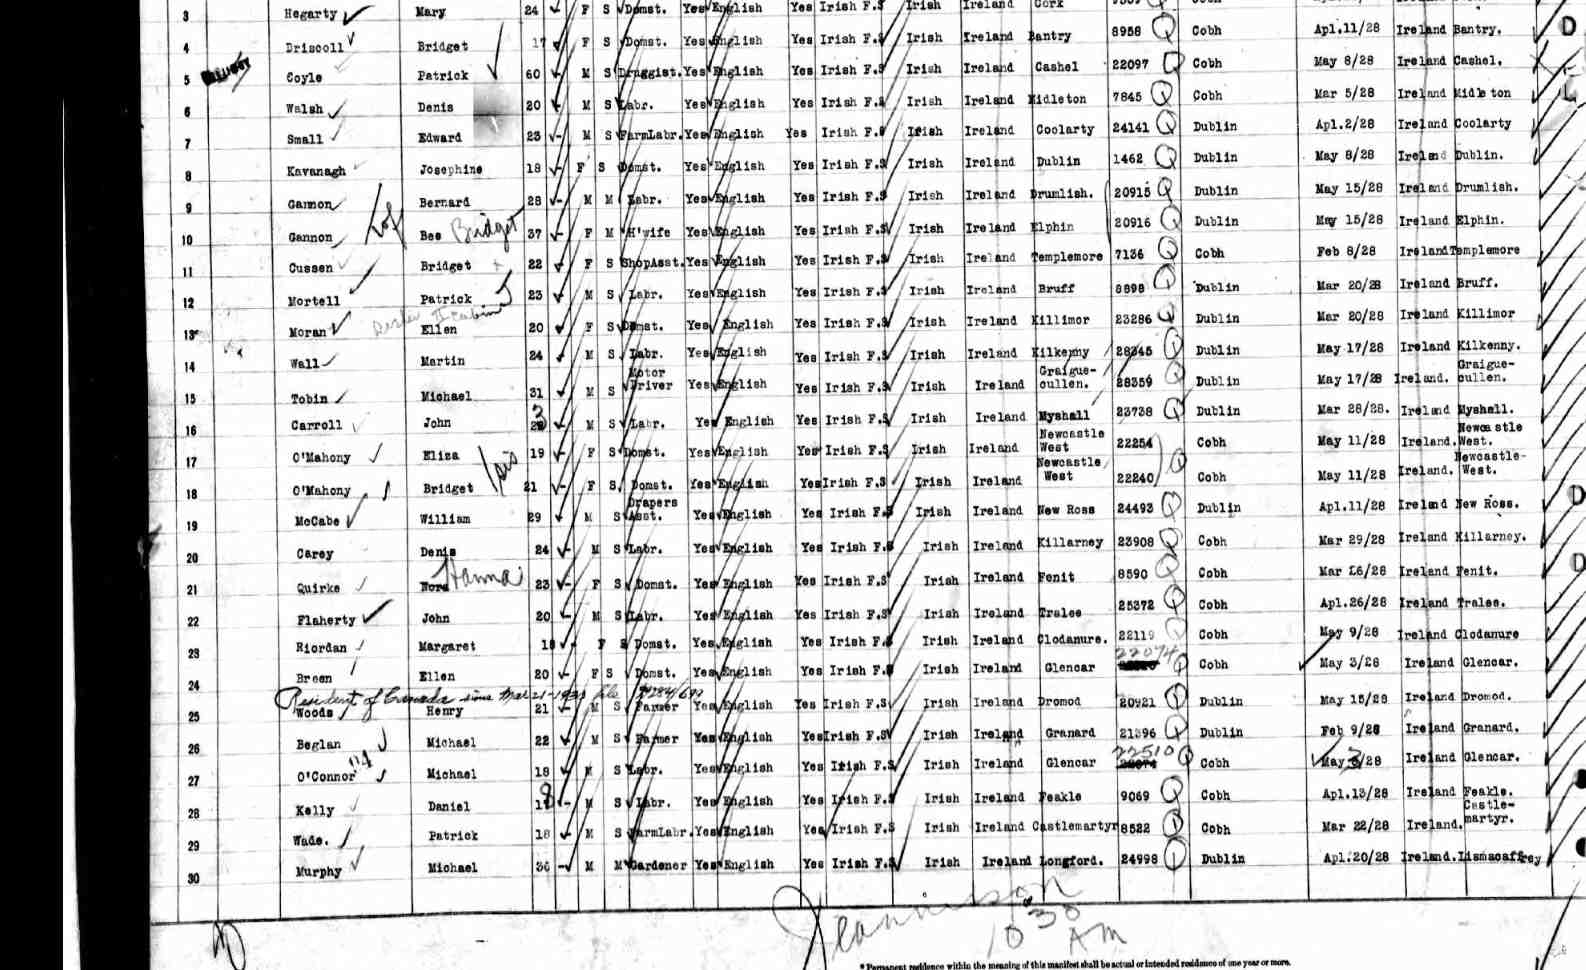 3 Hegarty Mary 24 F S Domst. Yes English Yes Irish F.S Irish Ireland Cork
4 Driscoll Bridget 17 F S Domst. Yes English Yes Irish F.S Irish Ireland Bantry 8958 Q Cobh Apl.11/28 Ireland Bantry.
5 Coyle Patrick 60 M S Druggist. Yes English Yes Irish F.S Irish Ireland Cashel 22097 Q Cobh May 8/28 Ireland Cashel.
6 Walsh Denis 20 M S Labr. Yes English Yes Irish F.S Irish Ireland Midleton 7845 Q Cobh Mar 5/28 Ireland Midleton
7 Small Edward 23 M S FarmLabr. Yes English Yes Irish F.S Irish Ireland Coolarty 24141 Q Dublin Apl.2/28 Ireland Coolarty
8 Kavanagh Josephine 18 F S Domst. Yes English Yes Irish F.S Irish Ireland Dublin 1462 Q Dublin May 8/28 Ireland Dublin.
9 Gannon Bernard 28 M M Labr. Yes English Yes Irish F.S Irish Ireland Drumlish. 20915 Q Dublin May 15/28 Ireland Drumlish.
10 Gannon Bee Bridget 37 F M H'wife Yes English Yes Irish F.S Irish Ireland Elphin 20916 Q Dublin May 15/28 Ireland Elphin.
11 Cussen Bridget 22 F S ShopAsst. Yes English Yes Irish F.S Irish Ireland Templemore 7136 Q Cobh Feb 8/28 Ireland Templemore
12 Mortell Patrick 23 M S Labr. Yes English Yes Irish F.S Irish Ireland Bruff 8898 Q Dublin Mar 20/28 Ireland Bruff.
13 Moran Ellen 20 F S Domst. Yes English Yes Irish F.S Irish Ireland Killimor 23286 Q Dublin Mar 20/28 Ireland Killimor
14 Wall Martin 24 M S Labr. Yes English Yes Irish F.S Irish Ireland Kilkenny 28345 Q Dublin May 17/28 Ireland Kilkenny.
15 Tobin Michael 31 M S Motor Driver Yes English Yes Irish F.S Irish Ireland Graigue-cullen. 28359 Q Dublin May 17/28 Ireland. Graigue-cullen.
16 Carroll John M S Labr. Yes English Yes Irish F.S Irish Ireland Myshall 23738 Q Dublin Mar 28/28. Ireland Myshall.
17 O'Mahony Eliza 19 F S Domst. Yes English Yes Irish F.S Irish Ireland Newcastle West 22254 Q Cobh May 11/28 Ireland. Newcastle West.
18 O'Mahony Bridget 21 F S. Domst. Yes English Yes Irish F.S Irish Ireland Newcastle West 22240 Cobh May 11/28 Ireland. Newcastle-West.
19 McCabe William 29 M S Drapers Asst. Yes English Yes Irish F.S Irish Ireland New Ross 24493 Q Dublin Apl.11/28 Ireland New Ross.
20 Carey Denis 24 M S Labr. Yes English Yes Irish F.S Irish Ireland Killarney 23908 Q Cobh Mar 29/28 Ireland Killarney.
21 Quirke Nora Hanna 23 F S Domst. Yes English Yes Irish F.S Irish Ireland Fenit 8590 Q Cobh Mar 26/28 Ireland Fenit.
22 Flaherty John 20 M S Labr. Yes English Yes Irish F.S Irish Ireland Tralee 25372 Q Cobh Apl.26/28 Ireland Tralee.
23 Riordan Margaret 18 F S Domst. Yes English Yes Irish F.S Irish Ireland Clodanure. 22119 Q Cobh May 9/28 Ireland Clodanure
24 Breen Ellen 20 F S Domst. Yes English Yes Irish F.S Irish Ireland Glencar 22074 Q Cobh May 3/28 Ireland Glencar.
Resident of Canada since Mar 21-1930 file
25 Woods Henry 21 M S Farmer Yes English Yes Irish F.S Irish Ireland Dromod 20921 Q Dublin May 15/28 Ireland Dromod.
26 Beglan Michael 22 M S Farmer Yes English Yes Irish F.S Irish Ireland Granard 21396 Q Dublin Feb 9/28 Ireland Granard.
27 O'Connor Michael 18 M S Labr. Yes English Yes Irish F.S Irish Ireland Glencar 22510 Q Cobh May 3/28 Ireland Glencar.
28 Kelly Daniel M S Labr. Yes English Yes Irish F.S Irish Ireland Feakle 9069 Q Cobh Apl.13/28 Ireland Feakle.
29 Wade. Patrick 18 M S FarmLabr. Yes English Yes Irish F.S Irish Ireland Castlemartyr 8522 Q Cobh Mar 22/28 Ireland. Castle-martyr.
30 Murphy Michael 36 M M Gardener Yes English Yes Irish F.S Irish Ireland Longford. 24998 Q Dublin Apl.20/28 Ireland. Lismacaffrey
10 30 AM
* Permanent residence within the meaning of this manifest shall be actual or intended residence of one year or more.